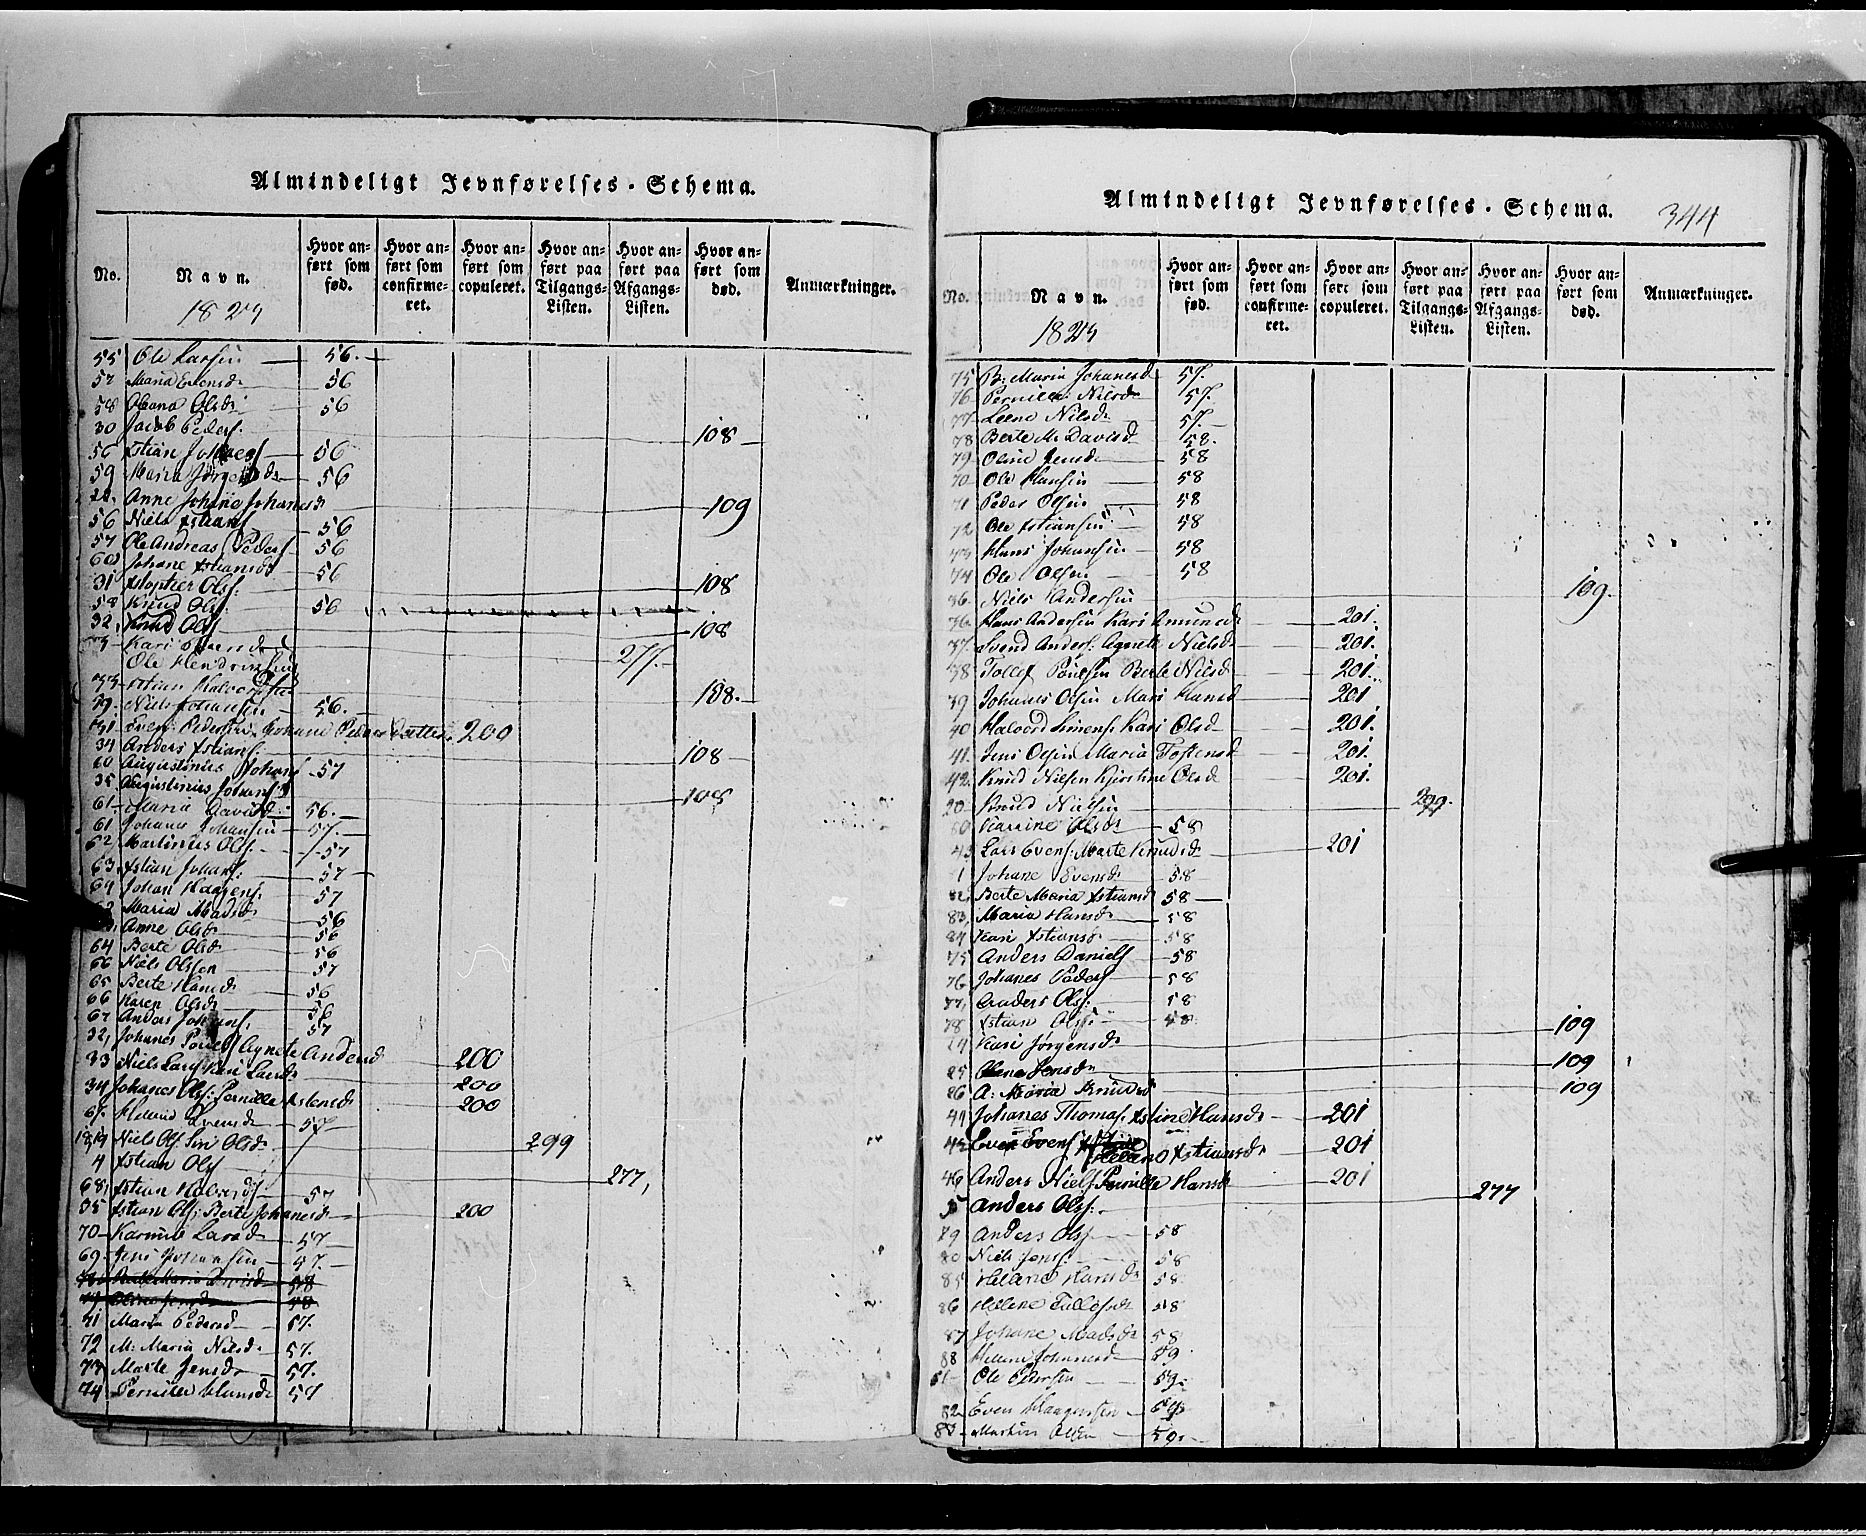 Almindeligt Jevnførelses-Schema.
No. Navn. Hvor anført som fød. Hvor anført som confirmeret. Hvor anført som copuleret. Hvor anført paa Tilgangs-Listen. Hvor anført paa Afgangs-Listen. Hvor anført som død. Anmærkninger.
55 Ole Larsen 56.
57 Maria Evensd 56
58 Oleana Olsdr 56
30 Jacob Peders. 108
56 Xstian 56
59 Maria Jørgensdr 56
Anne Johane Johanesd 109
56 Niels Xstians 56
57 Ole Andreas Peders 56
60 Johane Xstiansdr 56
31 Xstopher Ols. 108
58 Knud Ols. 56
32, Knud Ols 108
Kari
Ole Hendrichsen 277.
Xstian Halvorsen 108.
Niels Johansen 56.
31. Even Pedersen Johane 200
34 Anders Xstians. 108
60 Augustinius Johans 57
35 Augustinius Johans 108
61 Maria Davidsd. 56.
61 Johans Johansen 57.
62 Martinius Ols. 57
63. Xstian Johans. 57
64 Johan Haagens. 57
Maria Madsd 56
Anne Olsdr 56
64 Berte Olsdr 56
66 Niels Olsen 57
65 Berte Hansdr 56
66 Karen Olsdr 56
67 Anders Johans. 57
32, Johanes Pouels Agnete Andersd 200
33 Niels Lars Kari Larsdr 200
34 Johanes Ols. Pernille Xstensdr 200
67. Evensdr 57
Niels Ols. Siri Olsdr 299
4 Xstian Ols 277,
68, Xstian Halvords 57
35 Xstian Ols. Berte Johanesdr 200
70 Larsd 57
69. Jens Johansen 57.
58
58
71 Maria Pedersd 57.
72 M: Maria Nilsdr 57.
73 Marte Jensdr 57.
74 Pernille Hansdr 57
Almindeligt Jevnførelses-Schema. 344
No. Navn. Hvor anført som fød. Hvor anført som confirmeret. Hvor anført som copuleret. Hvor anført paa Tilgangs-Listen. Hvor anført paa Afgangs-Listen. Hvor anført som død. Anmærkninger.
75 B: Maria Johanesd 57.
76 Pernille Nilsdr 57.
77 Leene Nilsdr 57.
78 Berte M. Davidsd 58.
79 Oline Jensdr 58
70 Ole Hansen 58
71 Peder Olsen 58
72 Ole Xstiansen 58
73 Hans Johansen 58
74 Ole Olsen 58
36. Niels Andersen 109.
36. Hans Andersen Kari Amundsdr 201.
37. Svend Anders. Agnete Nielsdr 201.
38 Tollef Poulsen Berte Nilsdr 201.
39 Johanes Olsen Mari Hansd 201
40 Halvord Simens. Kari Olsd 201.
41. Jens Olsen Maria Tostensd 201.
42. Knud Nielsen Kjerstine Olsd 201.
20 Knud Nielsen 299.
80 Karrine Olsdr 58
43 Lars Evens. Marte Knudsdr 201
1 Johane Evensdr 58
82. Berte Maria Xstiansd 58
83, Maria Hansdr 58
84 Kari Xstiansdr 58
75 Anders Daniels 58
76 Johanes Peders 58
77, Anders Ols. 58
78 Xstian Olsen 58
24 Kari Jørgensdr 109
25 Olene Jensdr 109
26 A: Maria Knudsd 109
44 Johanes Thomas. Xstine Hansdr 201
45 Even Evens Xstiansdr 201
46 Anders Niels Pernille Hansdr 201
5 Anders Ols. 277
79 Anders Ols 58
80 Niels Jens. 58
85 Helene Hansdr 58
86 Helene Tollefsdr 58
87 Johane Madsdr 58
88 Helene Johanesd 59
81 Ole Pedersen 59.
82 Even Haagensen 59
83 Martin Olsen 59.